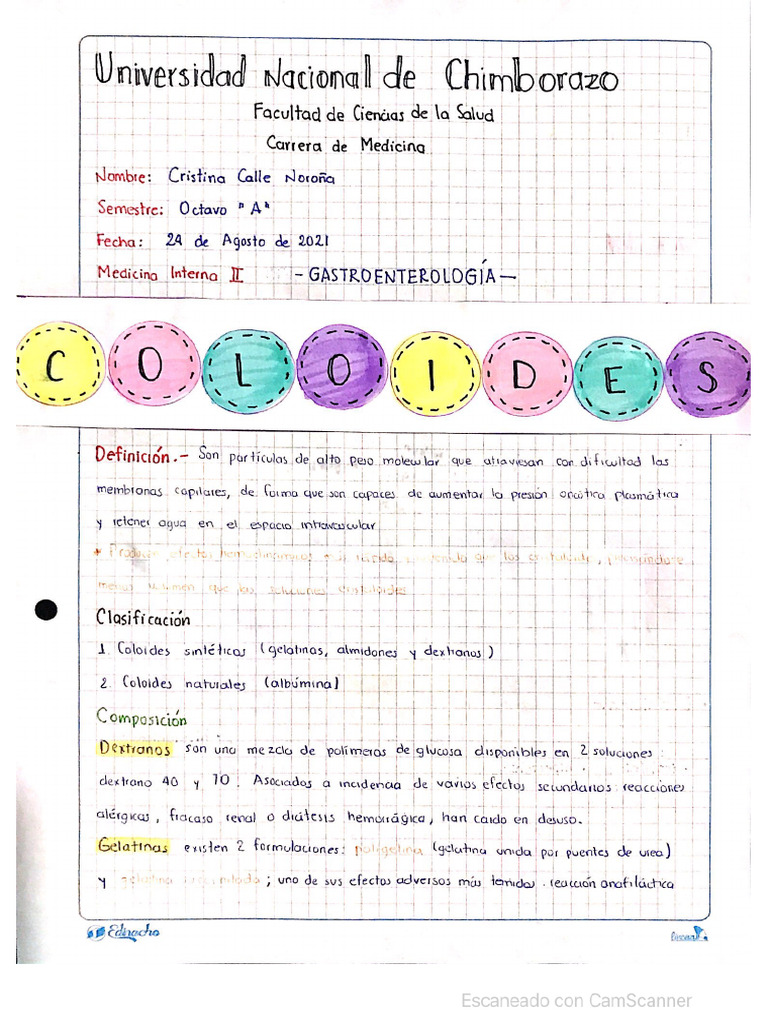 Universidad Nacional de Chimborazo
Facultad de Ciencias de la Salud
Carrera de Medicina
Nombre: Cristina Calle Noroña
Semestre: Octavo "A"
Fecha: 24 de Agosto de 2021
Medicina Interna II - GASTROENTEROLOGÍA -
COLOIDES
Definición.- Son partículas de alto peso molecular que atraviesan con dificultad las
membranas capilares, de forma que son capaces de aumentar la presión oncótica plasmática
y retener agua en el espacio intravascular
* Producen efectos hemodinámicos más rápido que los cristaloides,
menos volumen que las soluciones cristaloides
Clasificación
1. Coloides sintéticos (gelatinas, almidones y dextranos)
2. Coloides naturales (albúmina)
Composición
Dextranos son una mezcla de polímeros de glucosa disponibles en 2 soluciones
dextrano 40 y 70. Asociados a incidencia de varios efectos secundarios reacciones
alérgicas, fracaso renal o diátesis hemorrágica, han caído en desuso.
Gelatinas existen 2 formulaciones: poligelina (gelatina unida por puentes de urea)
y gelatina ; uno de sus efectos adversos más temidos. reacción anafiláctica
Edinacho
Escaneado con CamScanner